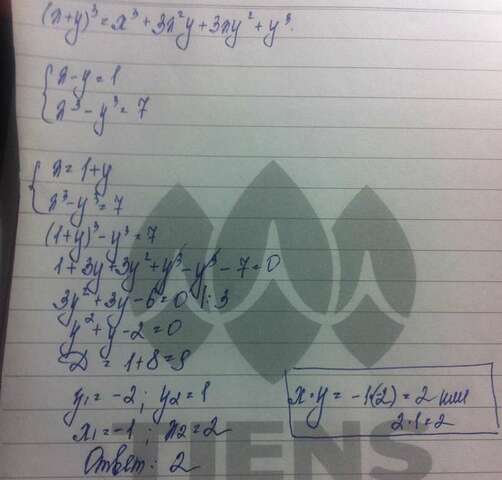 (x+y)³ = x³ + 3x²y + 3xy² + y³.
{ x-y=1
x³-y³=7
{ x=1+y
x³-y³=7
(1+y)³-y³=7
1+3y+3y²+y³-y³-7=0
3y²+3y-6=0 |:3
y²+y-2=0
D = 1+8=9
y₁=-2; y₂=1
x₁=-1; x₂=2
x·y = -1(2) = 2 или
2·1=2
Ответ: 2
TIENS